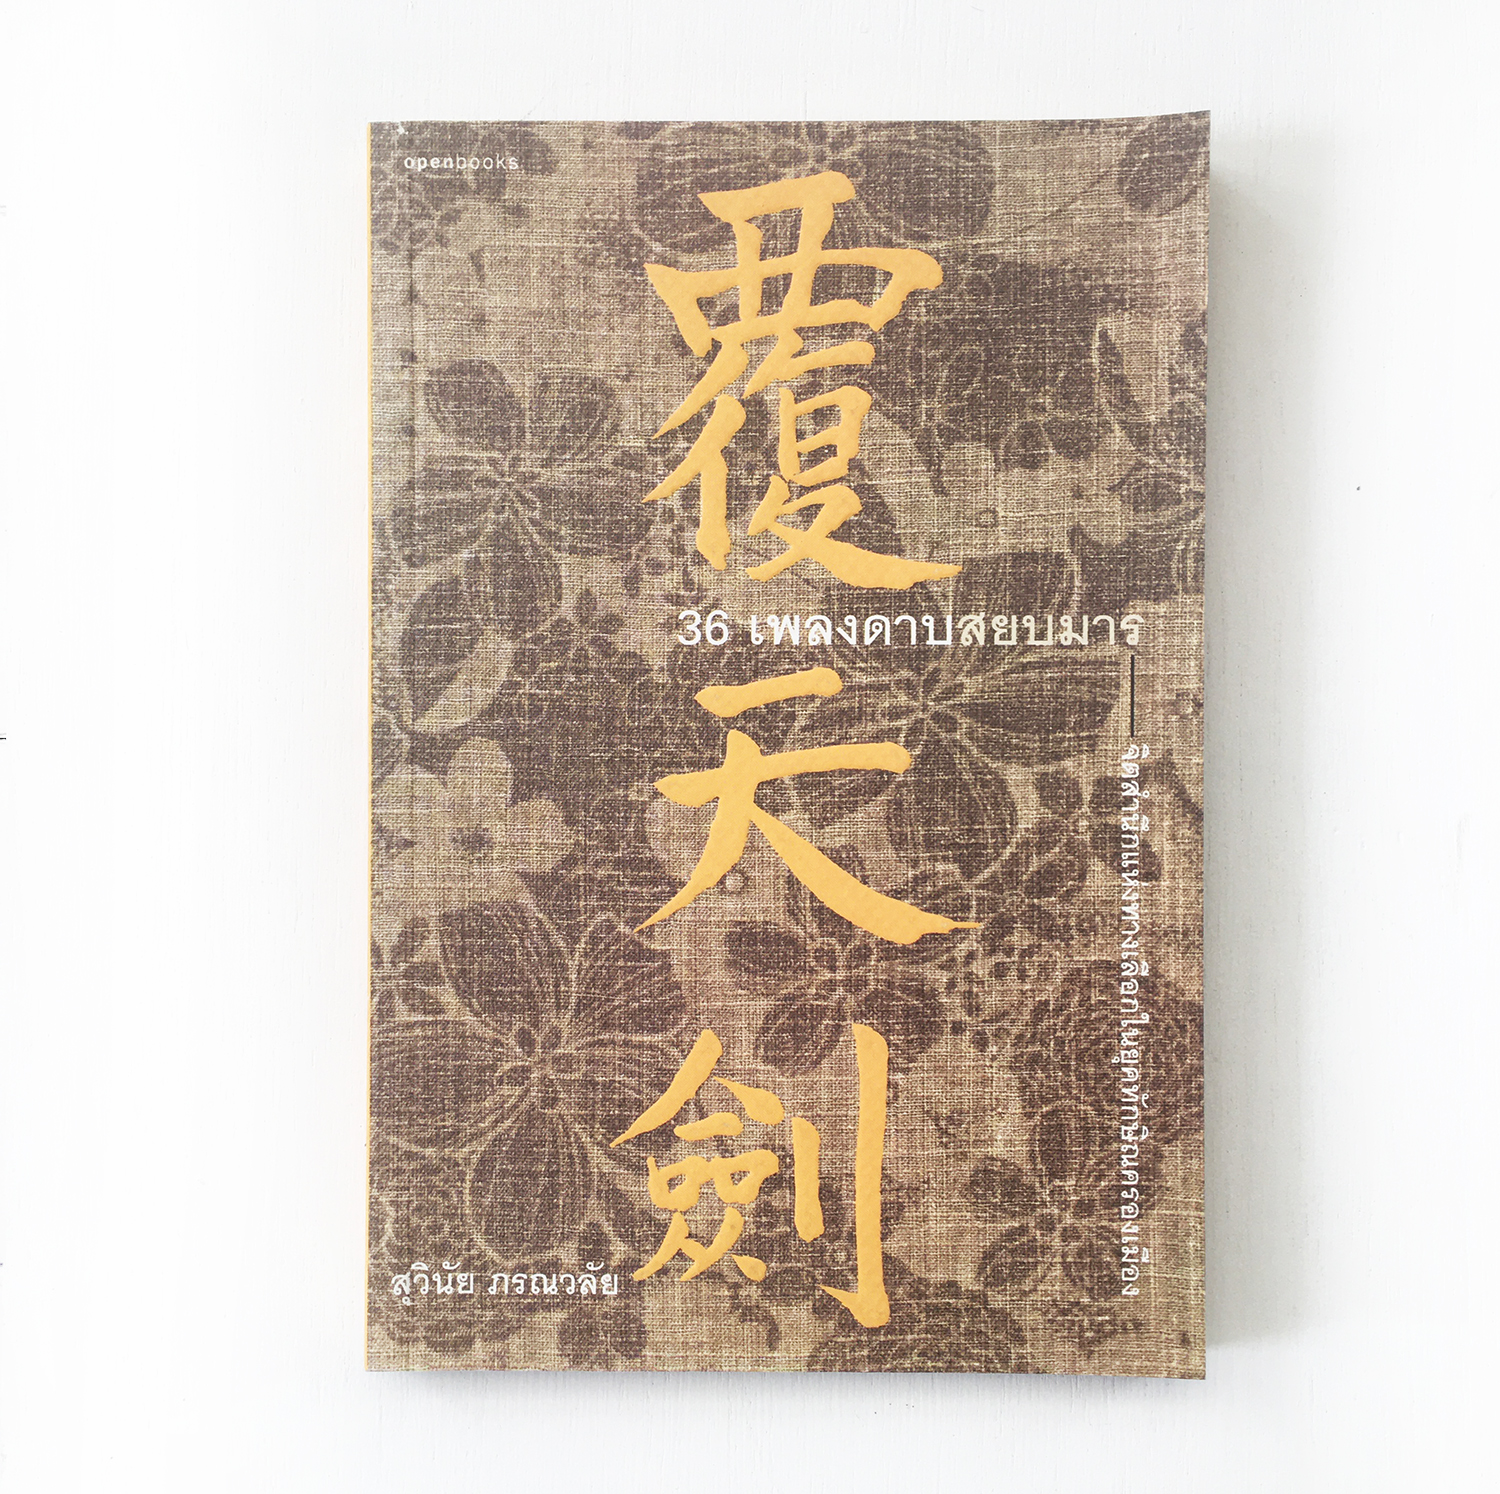 openbooks
覆天劍
36 เพลงดาบสยบมาร
จิตสำนึกแห่งทางเลือกในยุคทักษิณครองเมือง
สุวินัย ภรณวลัย